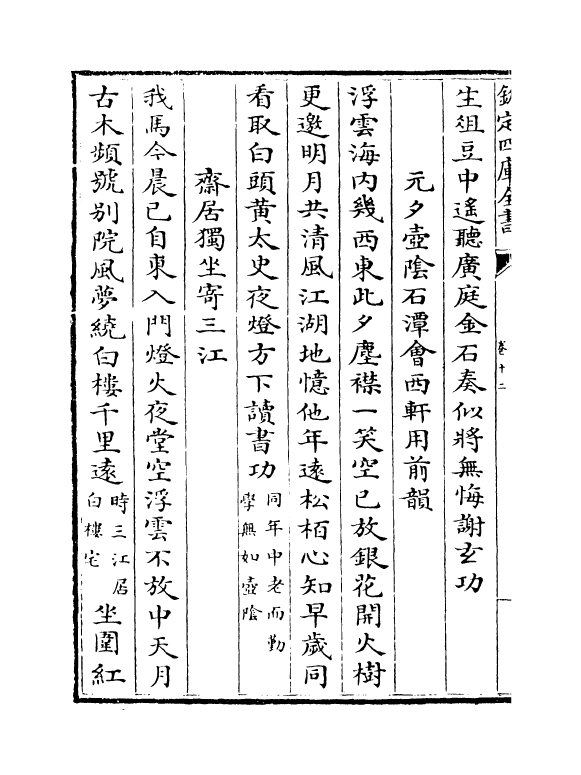 欽定四庫全書
卷十二
生俎豆中遙聽廣庭金石奏似將無悔謝玄功
元夕壺陰石潭會西軒用前韻
浮雲海內幾西東此夕塵襟一笑空已放銀花開火樹
更邀明月共清風江湖地憶他年遠松栢心知早歲同
看取白頭黃太史夜燈方下讀書功同年中老而勤學無如壺陰
齋居獨坐寄三江
我馬今晨已自東入門燈火夜堂空浮雲不放中天月
古木頻號別院風夢繞白樓千里遠時三江居白樓宅坐圍紅